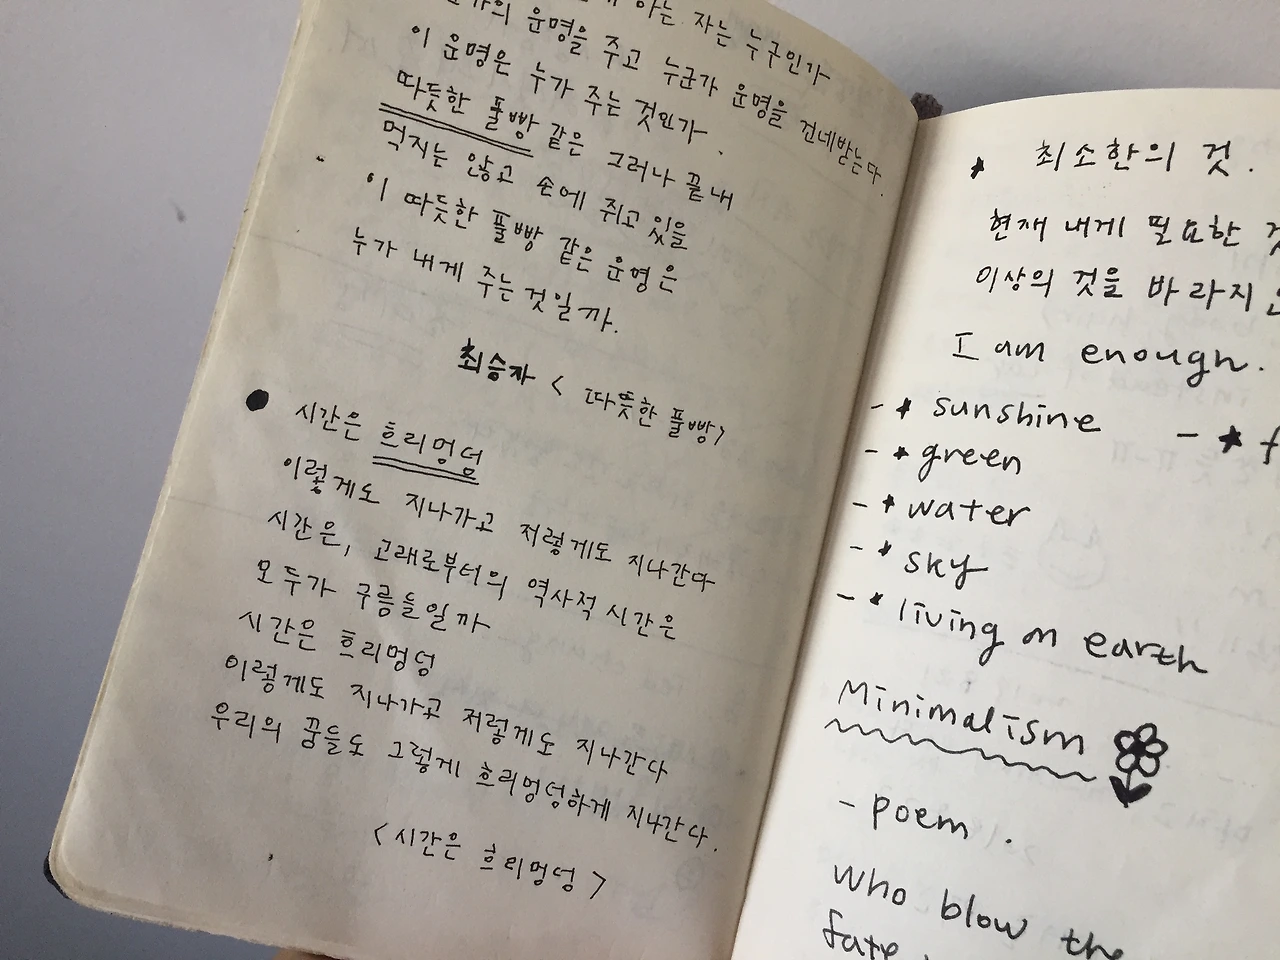 하는 자는 누구인가
운명을 주고 누군가 운명을 건네받는다.
이 운명은 누가 주는 것인가.
따듯한 풀빵 같은 그러나 끝내
먹지는 않고 손에 쥐고 있을
이 따듯한 풀빵 같은 운명은
누가 내게 주는 것일까.
최승자 < 따뜻한 풀빵>
● 시간은 흐리멍덩
이렇게도 지나가고 저렇게도 지나간다
시간은, 고래로부터의 역사적 시간은
모두가 구름들일까
시간은 흐리멍덩
이렇게도 지나가고 저렇게도 지나간다
우리의 꿈들도 그렇게 흐리멍덩하게 지나간다.
< 시간은 흐리멍덩 >
★ 최소한의 것.
현재 내게 필요한
이상의 것을 바라지
I am enough.
- ★ sunshine - ★ f
- ★ green
- ★ water
- ★ sky
- ★ living on earth
Minimalism
- poem .
who blow the
fate